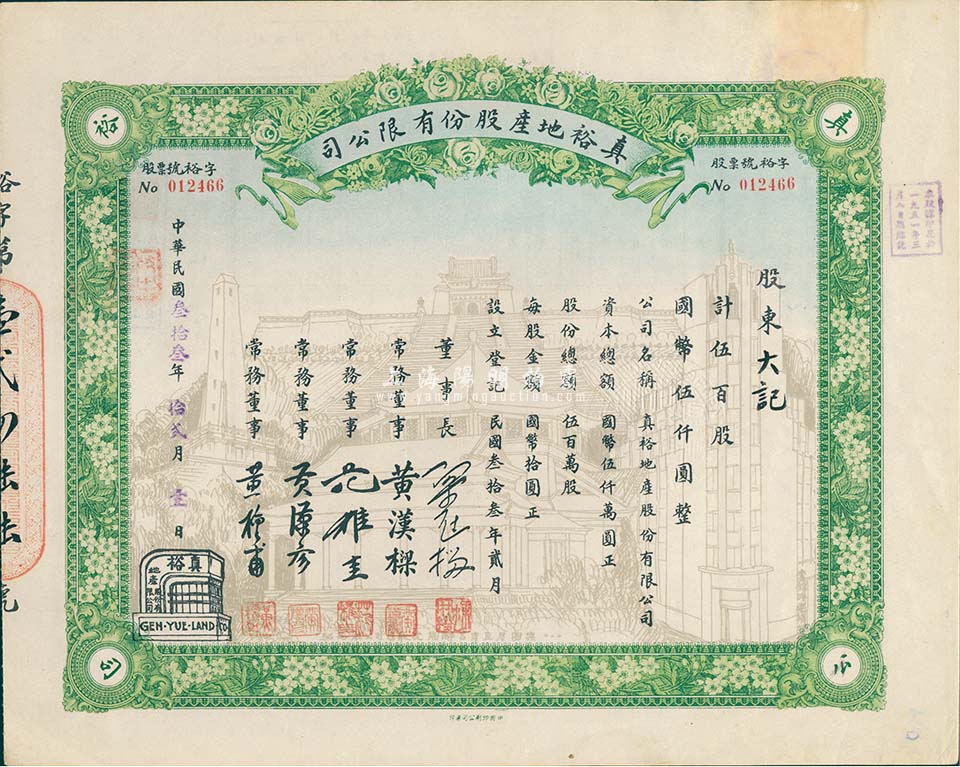 真裕地產股份有限公司
真
裕
公
司
股票號裕字
No 012466
股票號裕字
No 012466
股東大記
計伍百股
國幣伍仟圓整
公司名稱 真裕地產股份有限公司
資本總額 國幣伍仟萬圓正
股份總額 伍百萬股
每股金額 國幣拾圓正
設立登記 民國叁拾叁年貳月
董事長
常務董事 黃漢樑
常務董事 范雅圭
常務董事 黃漢彥
常務董事 董梅甫
中華民國叁拾叁年拾貳月壹日
真裕
地產股份有限公司
GEN·YUE·LAND·CO.
一九五一年三
www.yangmingauction.com